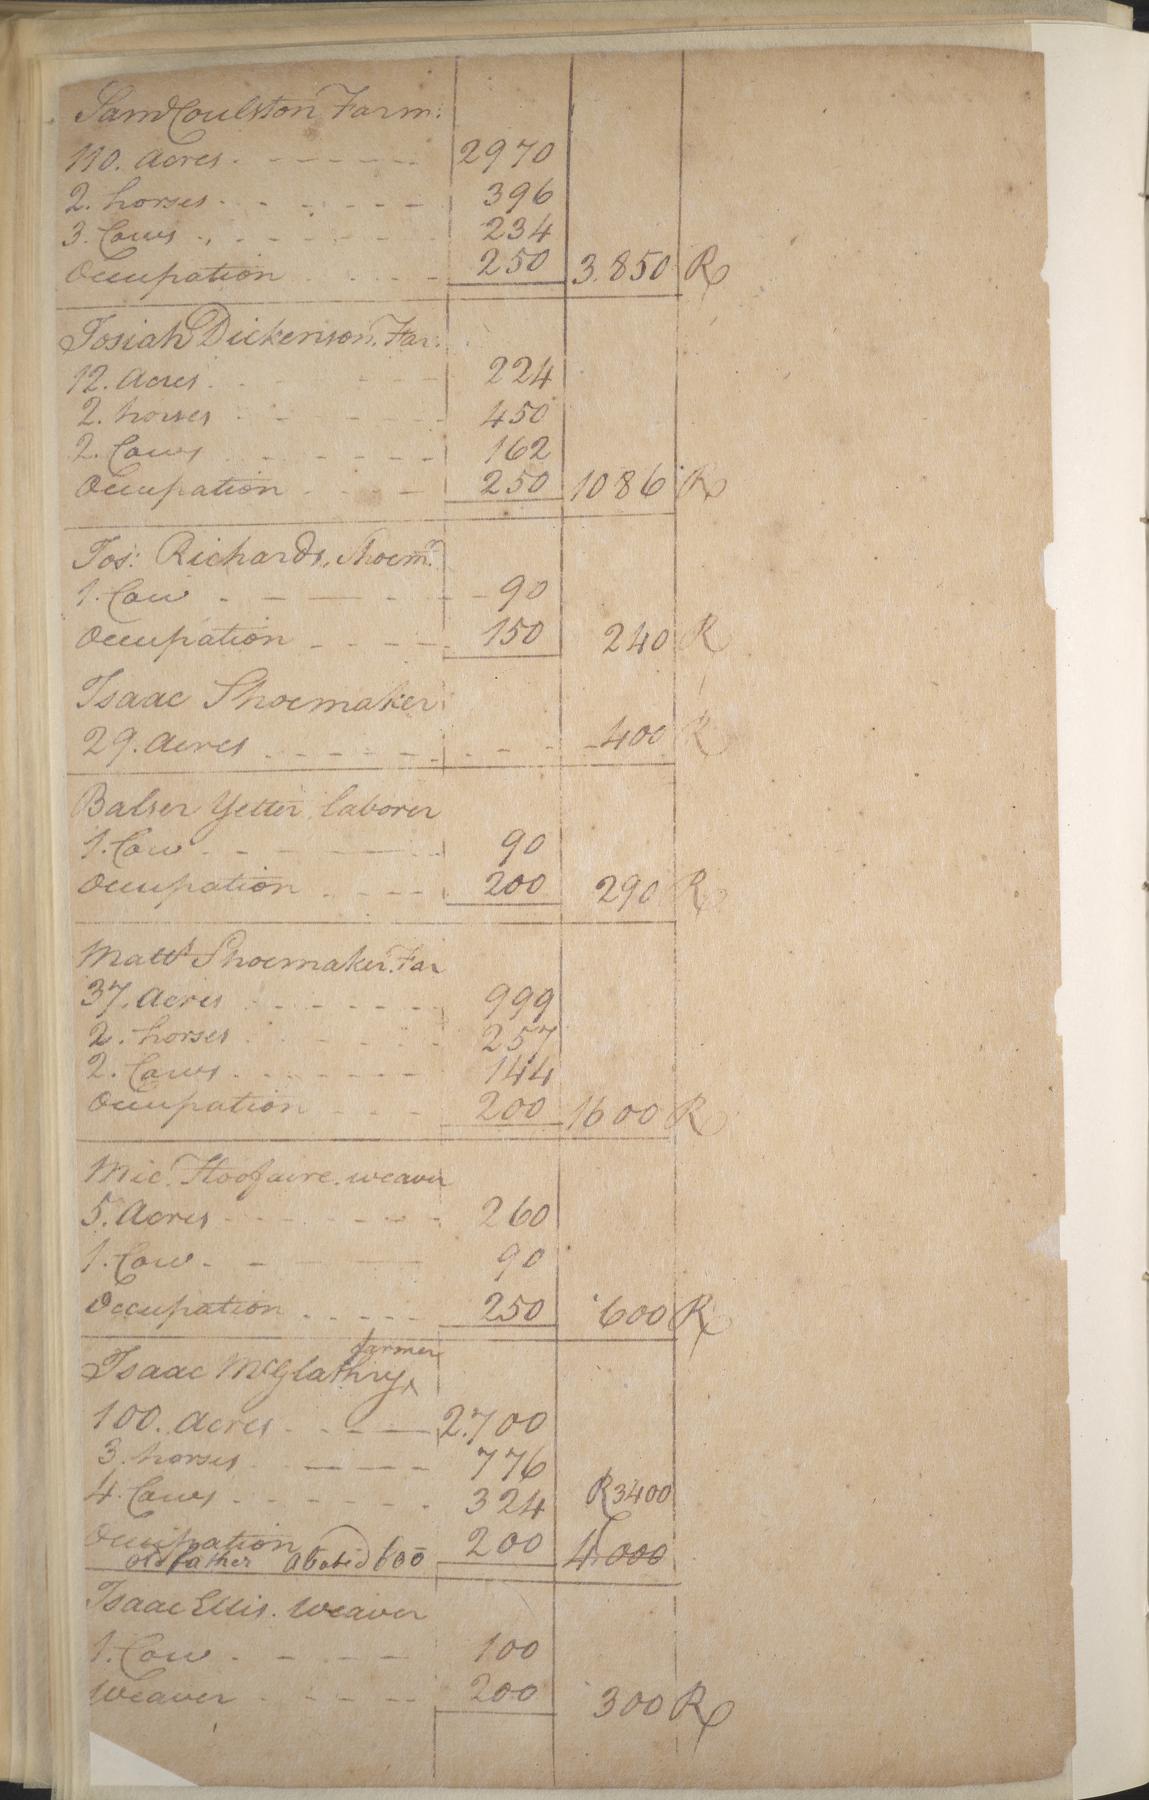 Saml Coulston Farm:
110. Acres 2970
2. horses 396
3. Cows 234
Occupation 250 3.850 R
Josiah Dickenson. Far:
12. Acres 224
2. horses 450
2. Cows 162
Occupation 250 1086 R
Jos: Richards, Shoemr
1. Cow 90
Occupation 150 240 R
Isaac Shoemaker
29. Acres 400 R
Balser Yetter laborer
1. Cow 90
Occupation 200 290 R
Matts Shoemaker. Far
37. Acres 999
2. horses 257
2. Cows 144
Occupation 200 1600 R
Mic. Hoofaire. weaver
5. Acres 260
1. Cow 90
Occupation 250 600 R
farmer
Isaac McGlathry ^
100. Acres 2.700
3. horses 776
4. Cows 324 R3400
Occupation 200 4.000
old father abated 600
Isaac Ellis. Weaver
1. Cow 100
Weaver 200 300 R